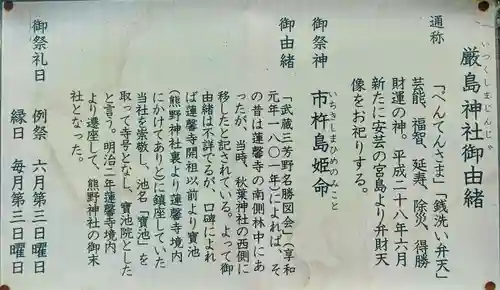 厳島神社御由緒
いつくしまじんじゃ
通称
「べんてんさま」「銭洗い弁天」
芸能、福智、延寿、除災、得勝
財運の神。平成二十八年六月
新たに安芸の宮島より弁財天
像をお祀りする。
御祭神
市杵島姫命
いちきしまひめのみこと
御由緒
「武蔵三芳野名勝図会」(享和
元年一八〇一年)によれば、そ
の昔は蓮馨寺の南側林中にあ
ったが、当時、秋葉神社の西側に
移したと記されている。よって御
由緒は不詳でるが、口碑によれ
ば蓮馨寺開祖以前より寳池
(熊野神社裏より蓮馨寺境内
にかけてありと)に鎮座していた
当社を崇敬し、池名「寳池」を
取って寺号となし、寳池院とした
と言う。明治二年蓮馨寺境内
より遷座して、熊野神社の御末
社となった。
御祭礼日
例祭 六月第三日曜日
縁日 毎月第三日曜日